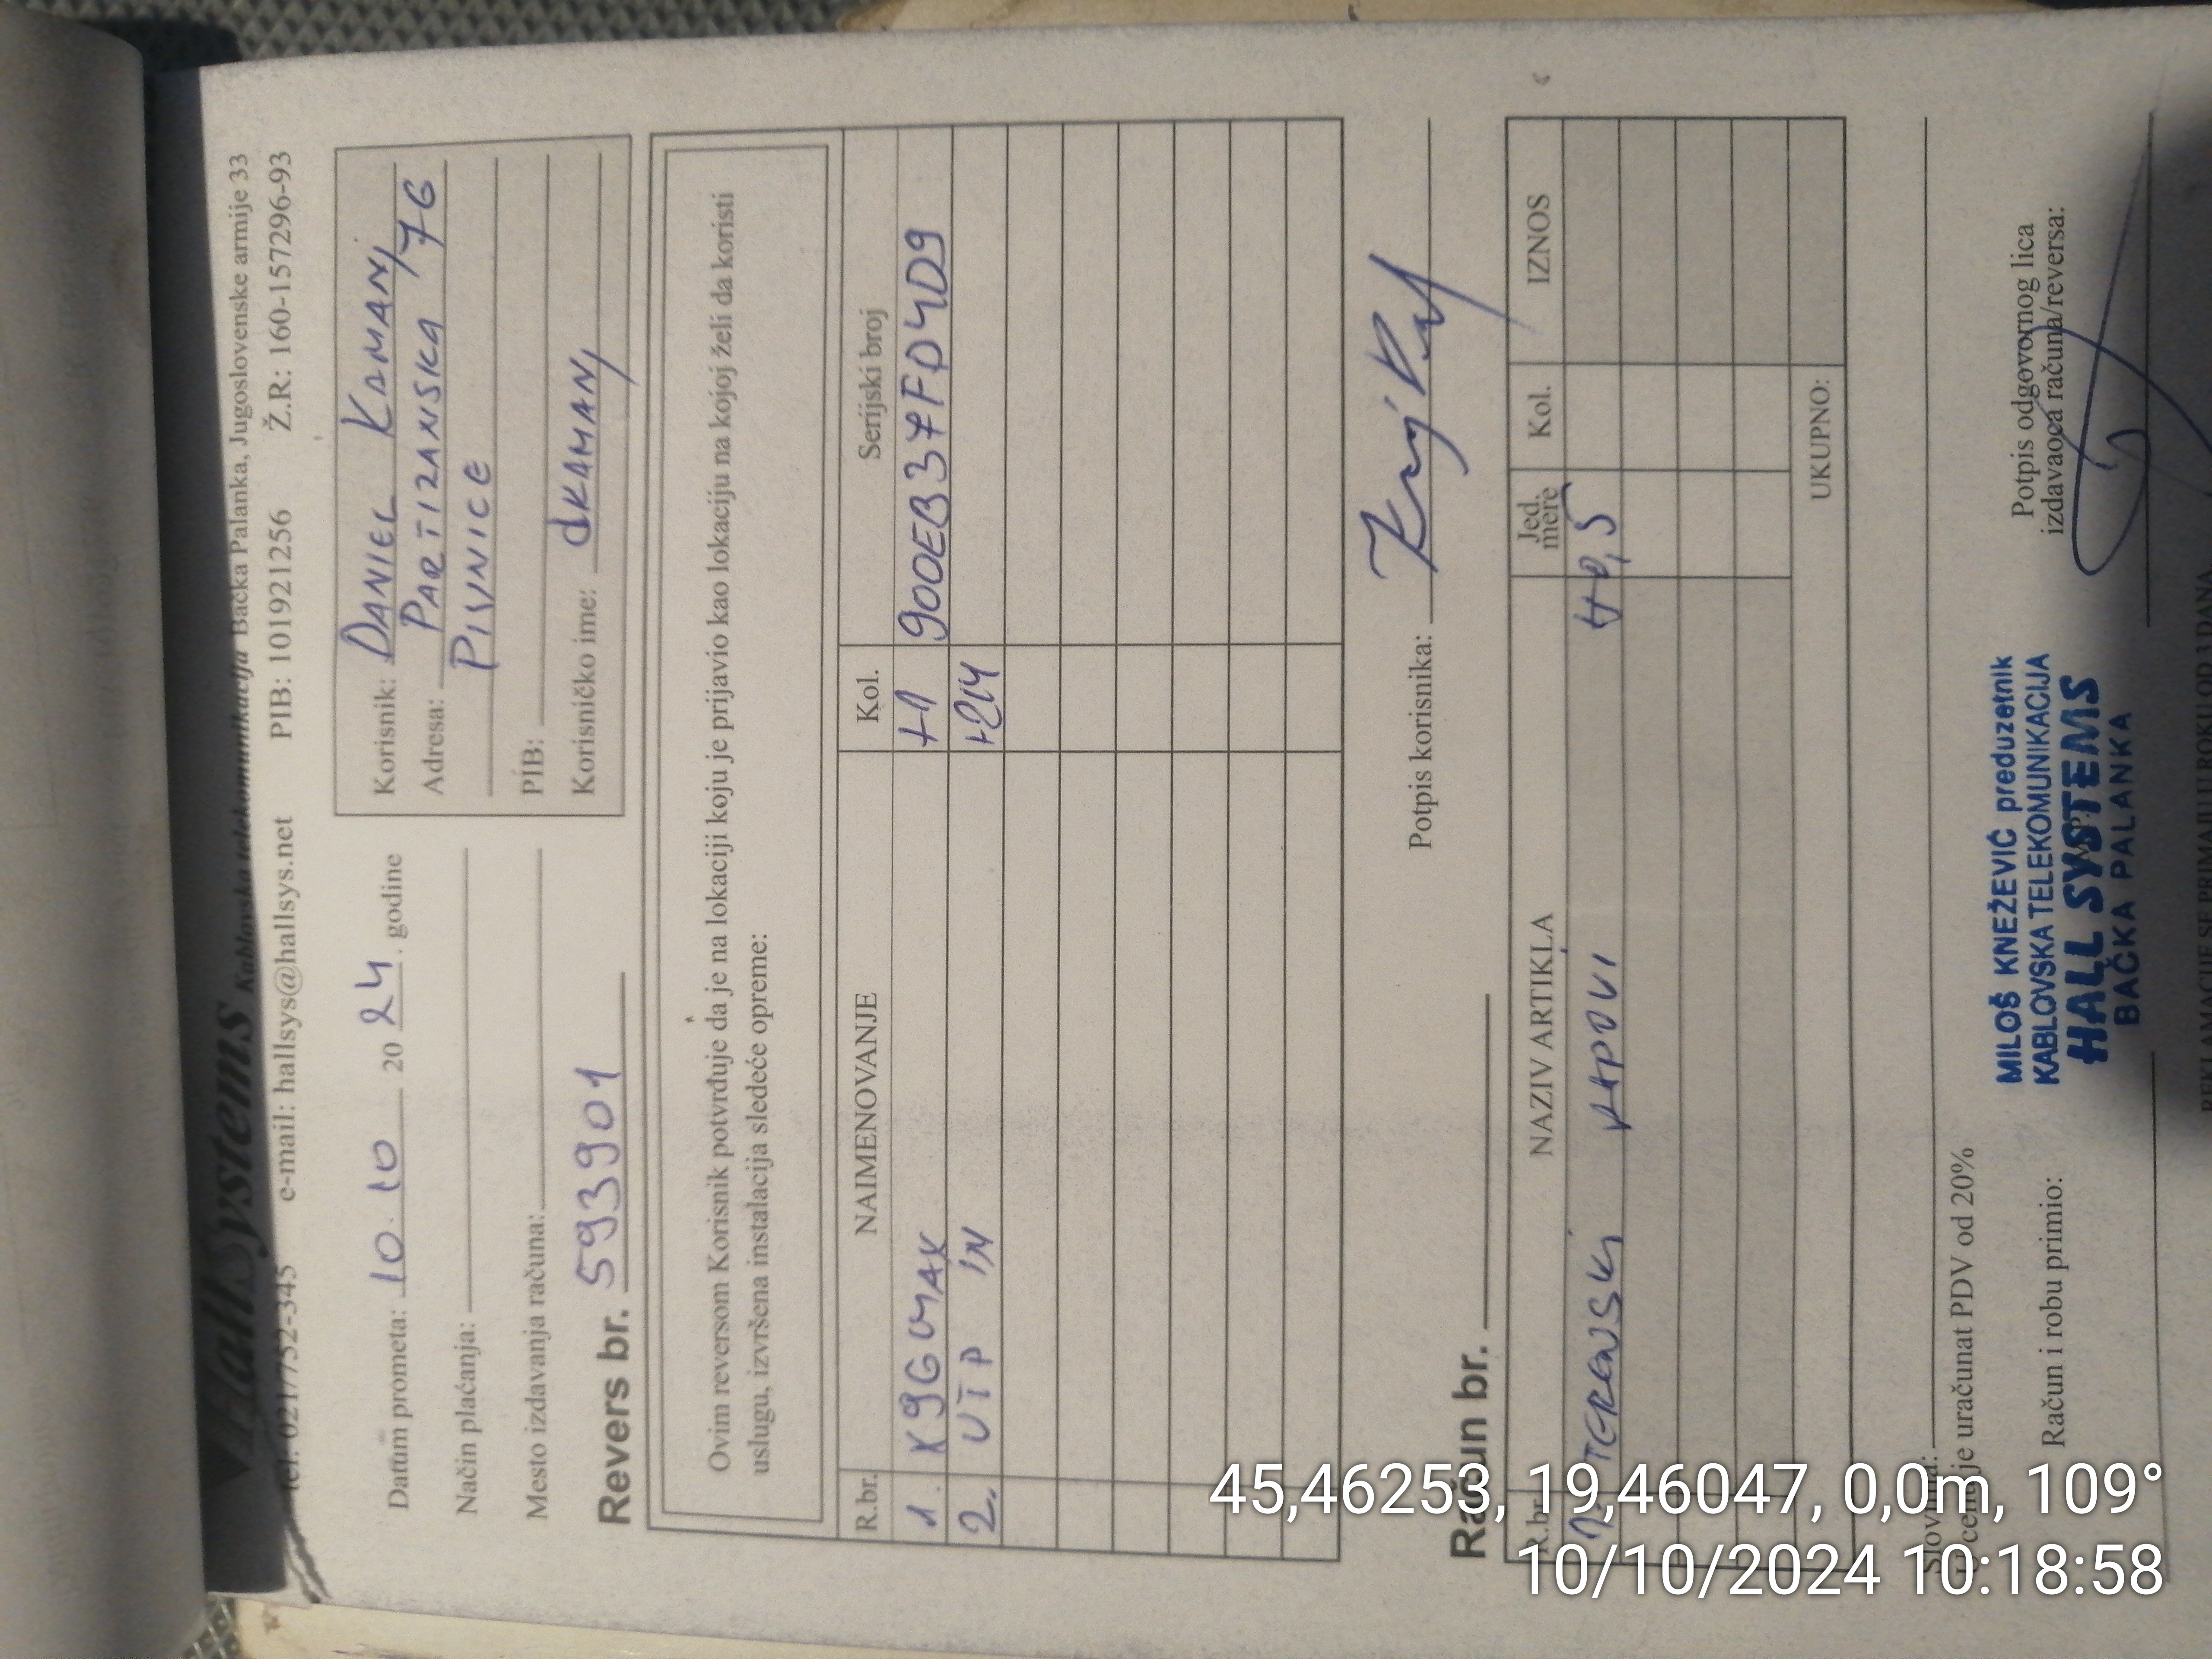 HallSystems Kablovska telekomunikacija Bačka Palanka, Jugoslovenske armije 33
tel. 021/752-345 e-mail: hallsys@hallsys.net PIB: 101921256 Ž.R: 160-157296-93
Datum prometa: 10.10 2024. godine
Način plaćanja:
Mesto izdavanja računa:
Revers br. 593901
Korisnik: DANIEL KAMANJ
Adresa: PARTIZANSKA 76
PIVNICE
PIB:
Korisničko ime: dKAMANJ
Ovim reversom Korisnik potvrđuje da je na lokaciji koju je prijavio kao lokaciju na kojoj želi da koristi
uslugu, izvršena instalacija sledeće opreme:
R.br. NAIMENOVANJE Kol. Serijski broj
1. +1 900EB37FD4D9
2. UTP IN +214
Potpis korisnika:
Račun br.
R.br. NAZIV ARTIKLA Jed. mere Kol. IZNOS
TERENSKI
UKUPNO:
Slovima:
U cenu je uračunat PDV od 20%
Račun i robu primio:
M.P.
MILOŠ KNEŽEVIĆ preduzetnik
KABLOVSKA TELEKOMUNIKACIJA
HALL SYSTEMS
BAČKA PALANKA
Potpis odgovornog lica
izdavaoca računa/reversa:
REKLAMACIJE SE PRIMAJU U ROKU OD 3 DANA
45,46253, 19,46047, 0,0m, 109°
10/10/2024 10:18:58